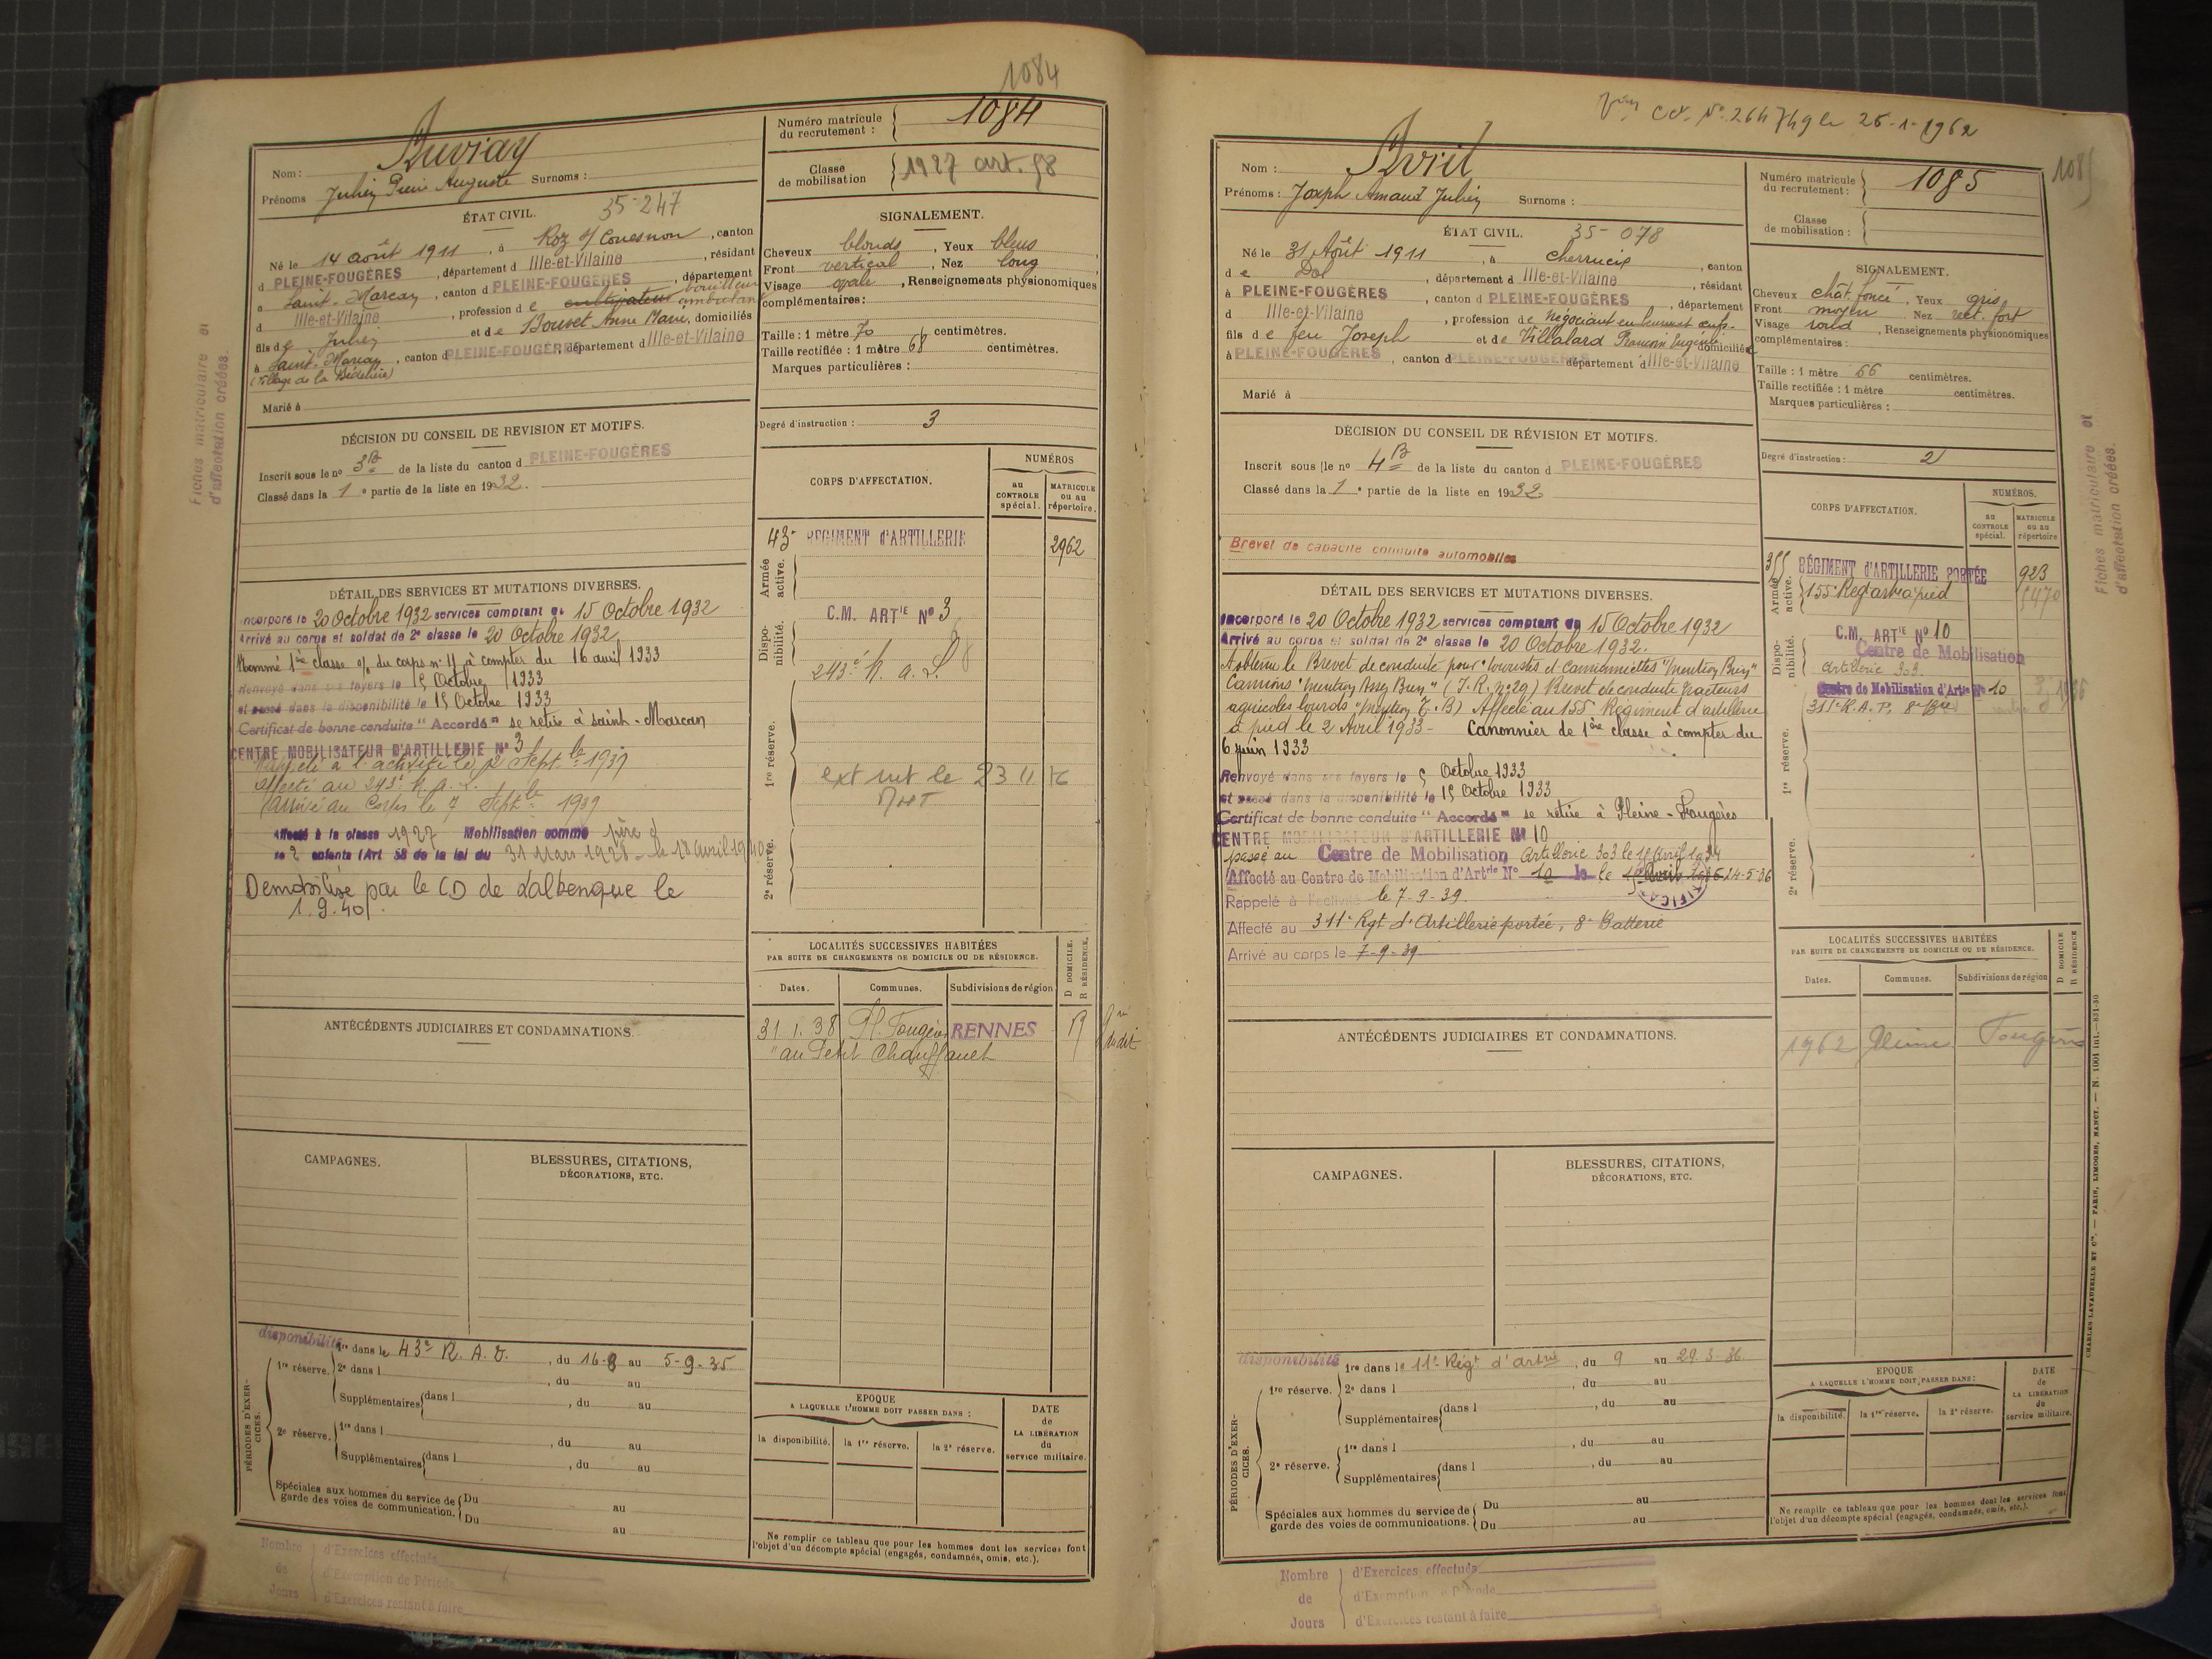 1084
Auvray
Nom :
Prénoms Julien Pierre Auguste Surnoms :
Numéro matricule du recrutement : 1084
Classe de mobilisation 1927 art. 58
ÉTAT CIVIL. 35-247
Né le 14 août 1911, à Roz s/ Couesnon, canton
d PLEINE-FOUGÈRES, département d Ille-et-Vilaine, résidant
à Saint-Marcan, canton d PLEINE-FOUGÈRES, département
d Ille-et-Vilaine, profession de cultivateur bouilleur ambulant
fils de Julien et de Bouvet Anne Marie, domiciliés
à Saint-Marcan, canton d PLEINE-FOUGÈRES, département d Ille-et-Vilaine
(Village de la Bédelière)
Marié à
SIGNALEMENT.
Cheveux blonds, Yeux bleus
Front vertical, Nez long
Visage ovale, Renseignements physionomiques
complémentaires :
Taille : 1 mètre 70 centimètres.
Taille rectifiée : 1 mètre 68 centimètres.
Marques particulières :
Degré d'instruction : 3
DÉCISION DU CONSEIL DE REVISION ET MOTIFS.
Inscrit sous le nº 3B de la liste du canton d PLEINE-FOUGÈRES
Classé dans la 1e partie de la liste en 1932.
CORPS D'AFFECTATION.
NUMÉROS
au CONTROLE spécial.
MATRICULE ou au répertoire.
Armée active.
43e RÉGIMENT d'ARTILLERIE 2962
Disponibilité.
C.M. ARTIE Nº 3
243e R. A. L.
1re réserve.
ext mt le 23 11 76
2e réserve.
DÉTAIL DES SERVICES ET MUTATIONS DIVERSES.
Incorporé le 20 Octobre 1932 services comptant du 15 Octobre 1932
Arrivé au corps et soldat de 2e classe le 20 Octobre 1932
Nommé 1ère classe o/ du corps nº 11 à compter du 16 avril 1933
Renvoyé dans ses foyers le 5 Octobre 1933
et passé dans la disponibilité le 15 Octobre 1933
Certificat de bonne conduite "Accordé" se retire à Saint-Marcan
CENTRE MOBILISATEUR D'ARTILLERIE Nº 3
Rappelé à l'activité le 2 Sept.bre 1939
affecté au 243e R. A. L.
Arrivé au Corps le 7 Septbre 1939
Affecté à la classe 1927 Mobilisation comme père d
se 2 enfants (Art 58 de la loi du 31 Mars 1928 - le 18 avril 1940
Démobilisé par le CD de Lalbenque le
1.9.40.
LOCALITÉS SUCCESSIVES HABITÉES
PAR SUITE DE CHANGEMENTS DE DOMICILE OU DE RÉSIDENCE.
Dates. Communes. Subdivisions de région D DOMICILE. R RÉSIDENCE.
31.1.38 Pl. Fougères RENNES R
"au Petit Chauffauet
ANTÉCÉDENTS JUDICIAIRES ET CONDAMNATIONS.
CAMPAGNES.
BLESSURES, CITATIONS,
DÉCORATIONS, ETC.
PÉRIODES D'EXERCICES.
disponibilité
1re réserve. 1re dans le 43e R. A. D., du 16-8 au 5-9-35
2e dans l , du au
Supplémentaires dans l , du au
2e réserve. 1re dans l , du au
Supplémentaires dans l , du au
Spéciales aux hommes du service de garde des voies de communication. Du au
Du au
EPOQUE
A LAQUELLE L'HOMME DOIT PASSER DANS :
la disponibilité. la 1re réserve. la 2e réserve.
DATE de LA LIBÉRATION du service militaire.
Ne remplir ce tableau que pour les hommes dont les services font
l'objet d'un décompte spécial (engagés, condamnés, omis, etc.).
Nombre de Jours
d'Exercices effectués
d'Exemption de Période
d'Exercices restant à faire
Fiches matriculaire et
d'affectation créées.
Nº 264749 le 26-1-1962
1085
Avril
Nom :
Prénoms : Joseph Amand Julien Surnoms :
Numéro matricule du recrutement : 1085
Classe de mobilisation :
ÉTAT CIVIL. 35-078
Né le 31 Août 1911, à Cherrueix, canton
de Dol, département d Ille-et-Vilaine, résidant
à PLEINE-FOUGÈRES, canton d PLEINE-FOUGÈRES, département
d Ille-et-Vilaine, profession de Négociant en
fils de feu Joseph et de Villalard Eugénie domiciliés
à PLEINE-FOUGÈRES, canton d PLEINE-FOUGÈRES département d Ille-et-Vilaine
Marié à
SIGNALEMENT.
Cheveux chât. foncé, Yeux gris
Front moyen, Nez rect. fort
Visage rond, Renseignements physionomiques
complémentaires :
Taille : 1 mètre 66 centimètres.
Taille rectifiée : 1 mètre centimètres.
Marques particulières :
Degré d'instruction : 2
DÉCISION DU CONSEIL DE RÉVISION ET MOTIFS.
Inscrit sous le nº 4B de la liste du canton d PLEINE-FOUGÈRES
Classé dans la 1e partie de la liste en 1932.
Brevet de capacité conduite automobiles
CORPS D'AFFECTATION.
NUMÉROS.
au CONTROLE spécial.
MATRICULE ou au répertoire
Armée active.
RÉGIMENT d'ARTILLERIE PORTÉE 923
155e Regt art à pied
Disponibilité.
C.M. ARTIE Nº 10
Centre de Mobilisation
Artillerie 303
Centre de Mobilisation d'Artie Nº 10
311e R.A.P. 8e Bie
1re réserve.
2e réserve.
DÉTAIL DES SERVICES ET MUTATIONS DIVERSES.
Incorporé le 20 Octobre 1932 services comptant du 15 Octobre 1932
Arrivé au corps et soldat de 2e classe le 20 Octobre 1932.
A obtenu le Brevet de conduite pour "touristes et camionnettes "mention Bien"
Camions "mention Assez Bien" (J.R. nº 29) Brevet de conduite tracteurs
agricoles lourds "mention T.B) Affecté au 155 Régiment d'artillerie
à pied le 2 Avril 1933 - Canonnier de 1ère classe à compter du
6 juin 1933
Renvoyé dans ses foyers le 5 Octobre 1933
et passé dans la disponibilité le 15 Octobre 1933
Certificat de bonne conduite "Accordé" se retire à Pleine-Fougères
CENTRE MOBILISATEUR D'ARTILLERIE Nº 10
passé au Centre de Mobilisation Artillerie 303 le 15 Avril 1934
Affecté au Centre de Mobilisation d'Artrie Nº 10 le 14-5-36
Rappelé à l'activité le 7-9-39.
Affecté au 311e Rgt d'Artillerie portée, 8e Batterie
Arrivé au corps le 7-9-39
LOCALITÉS SUCCESSIVES HABITÉES
PAR SUITE DE CHANGEMENTS DE DOMICILE OU DE RÉSIDENCE.
Dates. Communes. Subdivisions de région D DOMICILE R RÉSIDENCE
1962 Pleine Fougères
ANTÉCÉDENTS JUDICIAIRES ET CONDAMNATIONS.
CAMPAGNES.
BLESSURES, CITATIONS,
DÉCORATIONS, ETC.
PÉRIODES D'EXERCICES.
disponibilité
1re réserve. 1re dans le 11e Régt d'artrie, du 9 au 29-3-36
2e dans l , du au
Supplémentaires dans l , du au
2e réserve. 1re dans l , du au
Supplémentaires dans l , du au
Spéciales aux hommes du service de garde des voies de communications. Du au
Du au
EPOQUE
A LAQUELLE L'HOMME DOIT PASSER DANS :
la disponibilité. la 1re réserve. la 2e réserve.
DATE de LA LIBÉRATION du service militaire.
Ne remplir ce tableau que pour les hommes dont les services font
l'objet d'un décompte spécial (engagés, condamnés, omis, etc.).
Nombre de Jours
d'Exercices effectués
d'Exemption de Période
d'Exercices restant à faire
Fiches matriculaire et
d'affectation créées.
CHARLES-LAVAUZELLE ET Cie. — PARIS, LIMOGES, NANCY. — N. 1001 int.—831-30